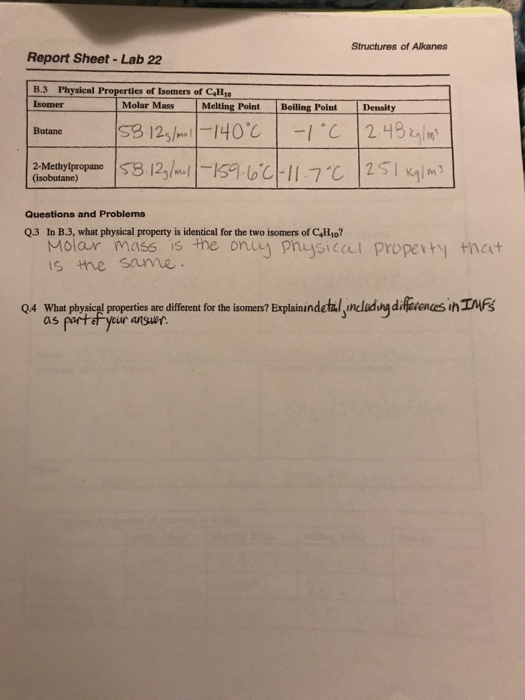 Structures of Alkanes
Report Sheet - Lab 22
B.3 Physical Properties of Isomers of C₄H₁₀
Isomer Molar Mass Melting Point Boiling Point Density
Butane 58.12g/mol -140°C -1°C 2.48 kg/m³
2-Methylpropane (isobutane) 58.12g/mol -159.6°C -11.7°C 251 kg/m³
Questions and Problems
Q.3 In B.3, what physical property is identical for the two isomers of C₄H₁₀?
Molar mass is the only physical property that
is the same.
Q.4 What physical properties are different for the isomers? Explain in detail, including differences in IMFs
as part of your answer.